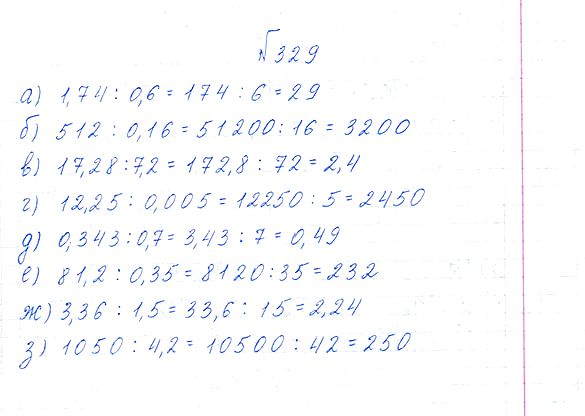 №329
а) 1,74 : 0,6 = 174 : 6 = 29
б) 512 : 0,16 = 51200 : 16 = 3200
в) 17,28 : 7,2 = 172,8 : 72 = 2,4
г) 12,25 : 0,005 = 12250 : 5 = 2450
д) 0,343 : 0,7 = 3,43 : 7 = 0,49
е) 81,2 : 0,35 = 8120 : 35 = 232
ж) 3,36 : 1,5 = 33,6 : 15 = 2,24
з) 1050 : 4,2 = 10500 : 42 = 250